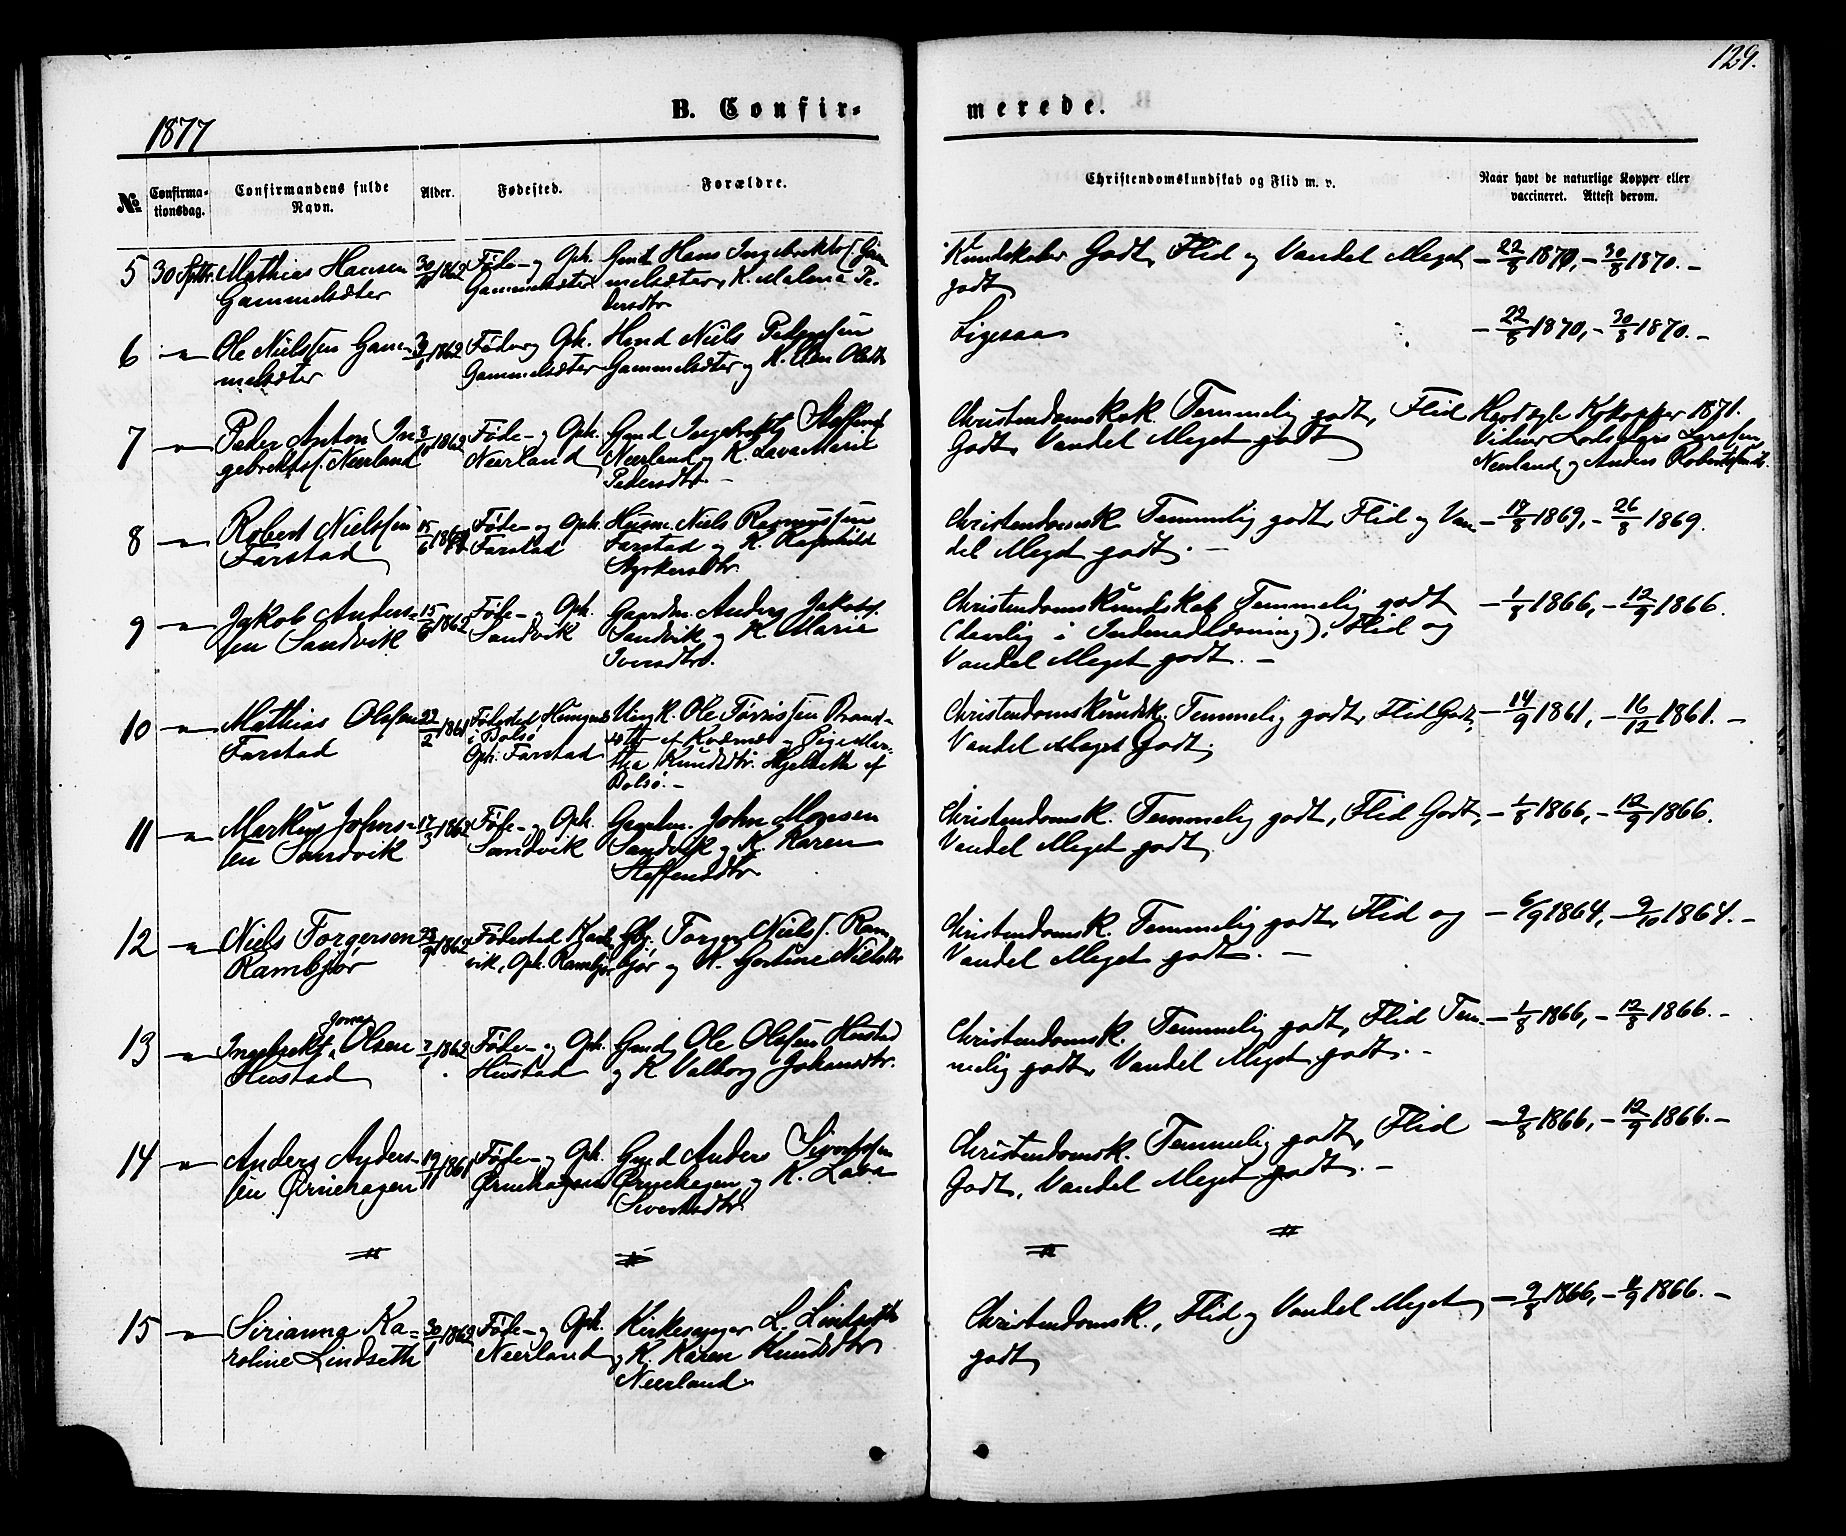 129.
1877
B. Confir-
merede.
№
Confirma-
tionsdag.
Confirmandens fulde
Navn.
Alder.
Fødested.
Forældre.
Christendomskundskab og Flid m. v.
Naar havt de naturlige Kopper eller
vaccineret. Attest derom.
5 30 Septbr. Mathias Hansen 1862 Føde- og Oph. Gmd Hans Ingebrektss. Gam Kundskaber Godt, Flid og Vandel Meget - 22/8 1870, - 30/8 1870. -
Gammelsæter Gammelsæter melsæter, K. Malena Pe- godt
dersdtr
6 - " - Ole Nielssen Gam- 1862 Føde og Oph. Niels Pedersen Ligesaa - 22/8 1870, - 30/8 1870. -
melsæter Gammelsæter Gammelsæter og K. Olsdtr
7 - " - Peder Anton In 1862 Føde- og Oph. Gmd Ingebrekt Steffens Christendomsk. Temmelig godt, Flid Kokopper 1871.
gebrektss. Neerland Neerland Neerland og K. Lava Marie Godt, Vandel Meget godt Larssen
Pedersdtr. - Neerland og Anders
8 - " - Robert Nielssen 15/6 Føde- og Oph. Husm. Niels Rasmussen Christendomsk. Temmelig godt, Flid og Van- - 18/8 1869, - 26/8 1869.
Farstad Farstad Farstad og K. Ragnhild del Meget godt. -
Styrkersdtr.
9 - " - Jakob Anders- 15/6 1862 Føde- og Oph. Gaardm. Anders Jakobs. Christendomskundskab Temmelig godt - 1/8 1866, - 12/9 1866.
sen Sandvik Sandvik Sandvik og K. Marie (daarlig i Indenadlæsning), Flid og
Iversdtr. Vandel Meget godt. -
10 - " - Mathias Olssen 22/2 1861 Fødested Ungk. Ole Tørrissen Brand- Christendomskundsk. Temmelig godt, Flid Godt, - 14/9 1861, - 16/12 1861. -
Farstad i Bolsø af og Pige Mar- Vandel Meget Godt.
Oph. Farstad tha Knudsdtr. Hjelsæth af
Bolsø. -
11 - " - Markus Johns- 17/3 1862 Føde- og Oph. Gaardm. John Monsen Christendomsk. Temmelig godt, Flid Godt, - 1/8 1866, - 12/9 1866.
sen Sandvik Sandvik Sandvik og K. Karen Vandel Meget godt
Steffensdtr
12 - " - Niels Torgersen 1862 Fødested Gbr. Torger Niels. Ram- Christendomsk. Temmelig godt, Flid og - 6/9 1864, - 9/10 1864. -
Rambjør vik, Oph. Rambjør bjør og K. Nielsdtr Vandel Meget godt. -
13 - " - Ingebrekt Jonas Olsen 1862 Føde- og Oph. Gmd Ole Olssen Hustad Christendomsk. Temmelig godt, Flid Tem- - 1/8 1866, - 12/8 1866. -
Hustad Hustad og K Valborg Johansdtr. melig godt, Vandel Meget godt. -
14 - " - Anders Anders- 19/11 1861 Føde- og Oph. Gmd Anders Sivertssen Christendomsk. Temmelig godt, Flid - 2/8 1866, - 12/9 1866. -
sen Ørnehagen Ørnehagen Ørnehagen og K. Lava Godt, Vandel Meget godt. -
Sivertsdtr
15 - " - Sirianna Ka- 30/1 1862 Føde- og Oph. Kirkesanger L. Lindseth Christendomsk., Flid og Vandel Meget - 2/8 1866, - 11/9 1866. -
roline Lindseth Neerland og K. Karen Knudsdtr godt
Neerland